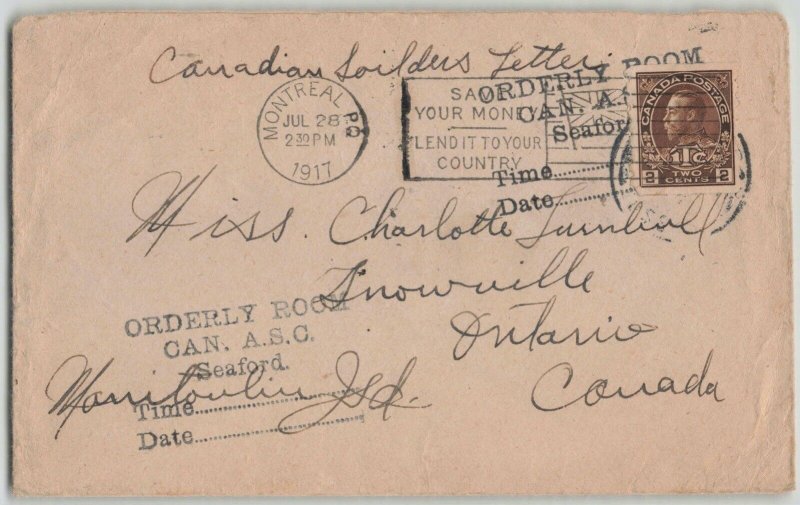 Canadian Soilders Letter.
ORDERLY ROOM
CAN. A.
Seaford
Time
Date
MONTREAL P.Q
JUL 28
2 30 PM
1917
SAVE
YOUR MONEY
LEND IT TO YOUR
COUNTRY
CANADA POSTAGE
1Tc
2 TWO CENTS 2
Miss. Charlotte Turnbull
Snowville
Ontario
Canada
Manitoulin Isd.
ORDERLY ROOM
CAN. A.S.C.
Seaford.
Time
Date